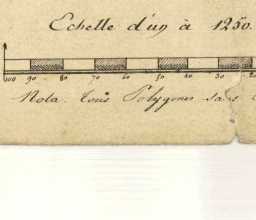 Echelle d'un à 1250.
100 90 80 70 60 50 40 30 20
Nota. Tous Polygones sans